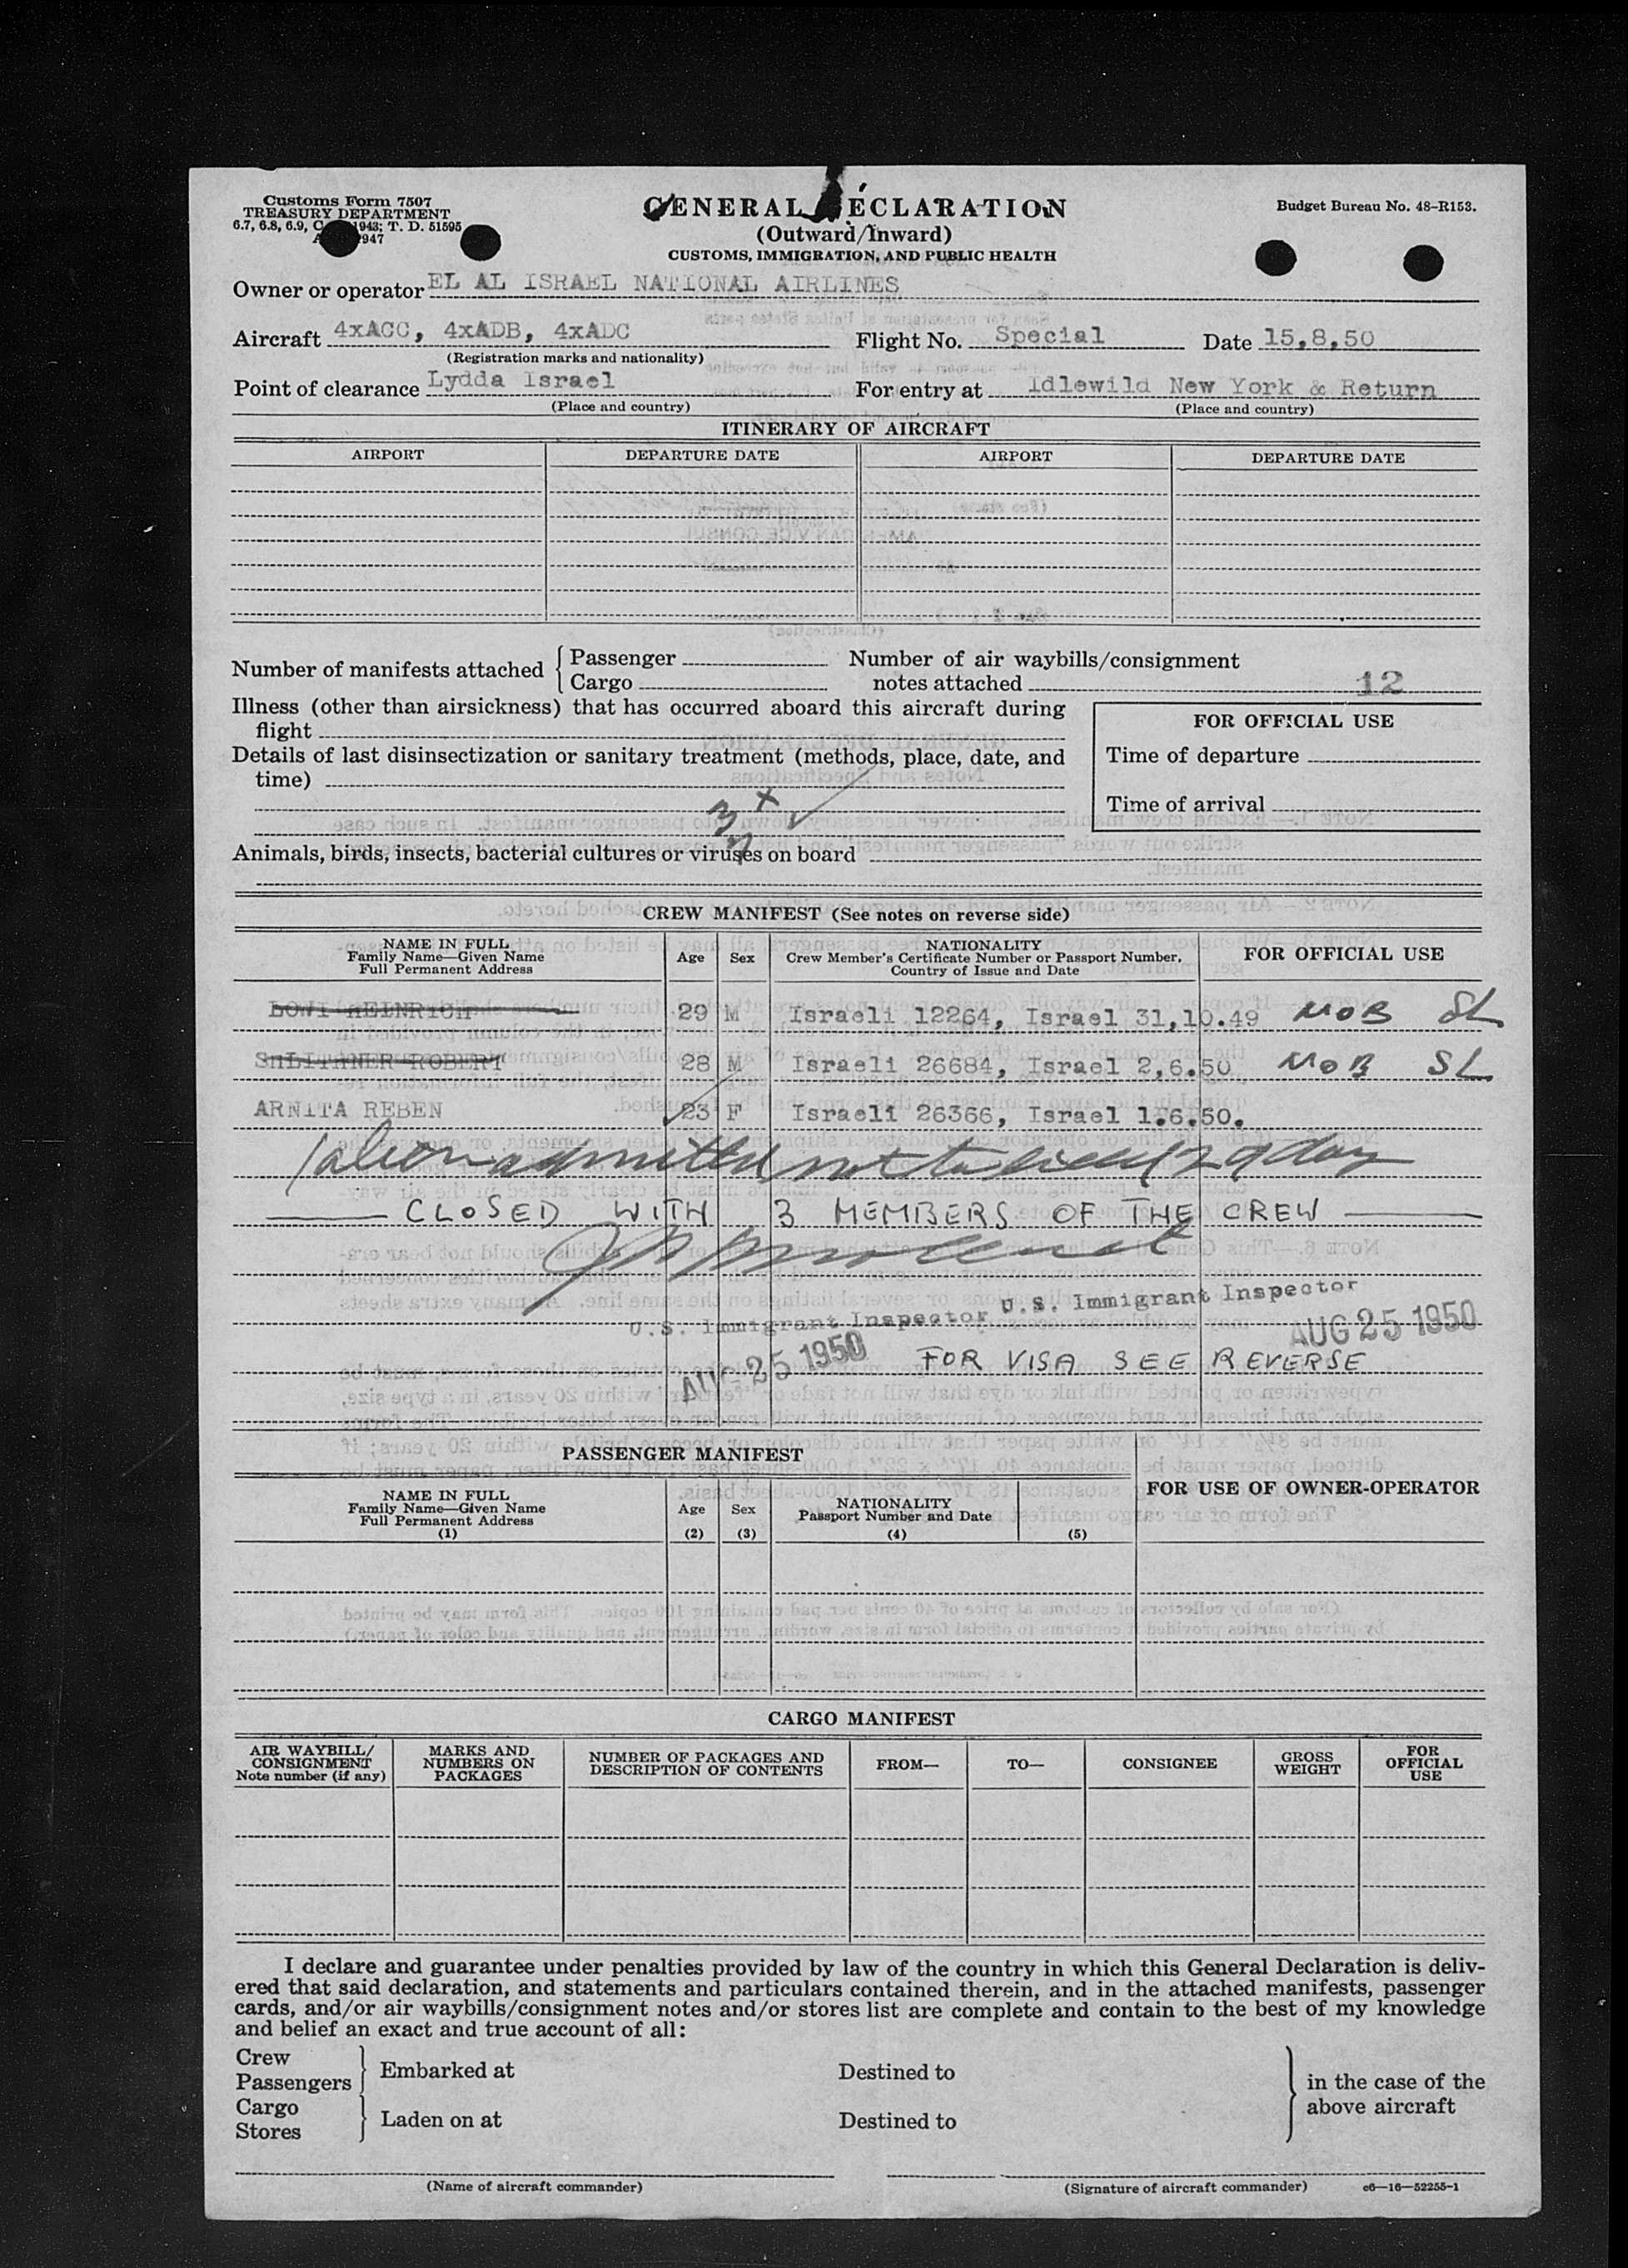 Customs Form 7507
TREASURY DEPARTMENT
6.7, 6.8, 6.9, C 1943; T. D. 51595
A 1947
GENERAL DECLARATION
(Outward/Inward)
CUSTOMS, IMMIGRATION, AND PUBLIC HEALTH
Budget Bureau No. 48-R153.
Owner or operator EL AL ISRAEL NATIONAL AIRLINES
Aircraft 4xACC, 4xADB, 4xADC Flight No. Special Date 15,8,50
(Registration marks and nationality)
Point of clearance Lydda Israel For entry at Idlewild New York & Return
(Place and country) (Place and country)
ITINERARY OF AIRCRAFT
AIRPORT DEPARTURE DATE AIRPORT DEPARTURE DATE
Number of manifests attached { Passenger
Cargo
Number of air waybills/consignment
notes attached 12
Illness (other than airsickness) that has occurred aboard this aircraft during
flight
Details of last disinsectization or sanitary treatment (methods, place, date, and
time)
FOR OFFICIAL USE
Time of departure
Time of arrival
3 x
Animals, birds, insects, bacterial cultures or viruses on board
CREW MANIFEST (See notes on reverse side)
NAME IN FULL
Family Name—Given Name
Full Permanent Address
Age
Sex
NATIONALITY
Crew Member's Certificate Number or Passport Number,
Country of Issue and Date
FOR OFFICIAL USE
LOWI HEINRICH 29 M Israeli 12264, Israel 31,10.49 MOB SL
ROBERT 28 M Israeli 26684, Israel 2,6.50 MOB SL
ARNITA REBEN 23 F Israeli 26366, Israel 1.6.50.
1 alien admitted not to exceed 29 days
CLOSED WITH 3 MEMBERS OF THE CREW
U.S. Immigrant Inspector
U.S. Immigrant Inspector
AUG 25 1950
AUG 25 1950
FOR VISA SEE REVERSE
PASSENGER MANIFEST
NAME IN FULL
Family Name—Given Name
Full Permanent Address
(1)
Age
(2)
Sex
(3)
NATIONALITY
Passport Number and Date
(4)
(5)
FOR USE OF OWNER-OPERATOR
CARGO MANIFEST
AIR WAYBILL/
CONSIGNMENT
Note number (if any)
MARKS AND
NUMBERS ON
PACKAGES
NUMBER OF PACKAGES AND
DESCRIPTION OF CONTENTS
FROM—
TO—
CONSIGNEE
GROSS
WEIGHT
FOR
OFFICIAL
USE
I declare and guarantee under penalties provided by law of the country in which this General Declaration is deliv-
ered that said declaration, and statements and particulars contained therein, and in the attached manifests, passenger
cards, and/or air waybills/consignment notes and/or stores list are complete and contain to the best of my knowledge
and belief an exact and true account of all:
Crew
Passengers } Embarked at Destined to
Cargo
Stores } Laden on at Destined to
} in the case of the
above aircraft
(Name of aircraft commander) (Signature of aircraft commander) c6—16—52255-1